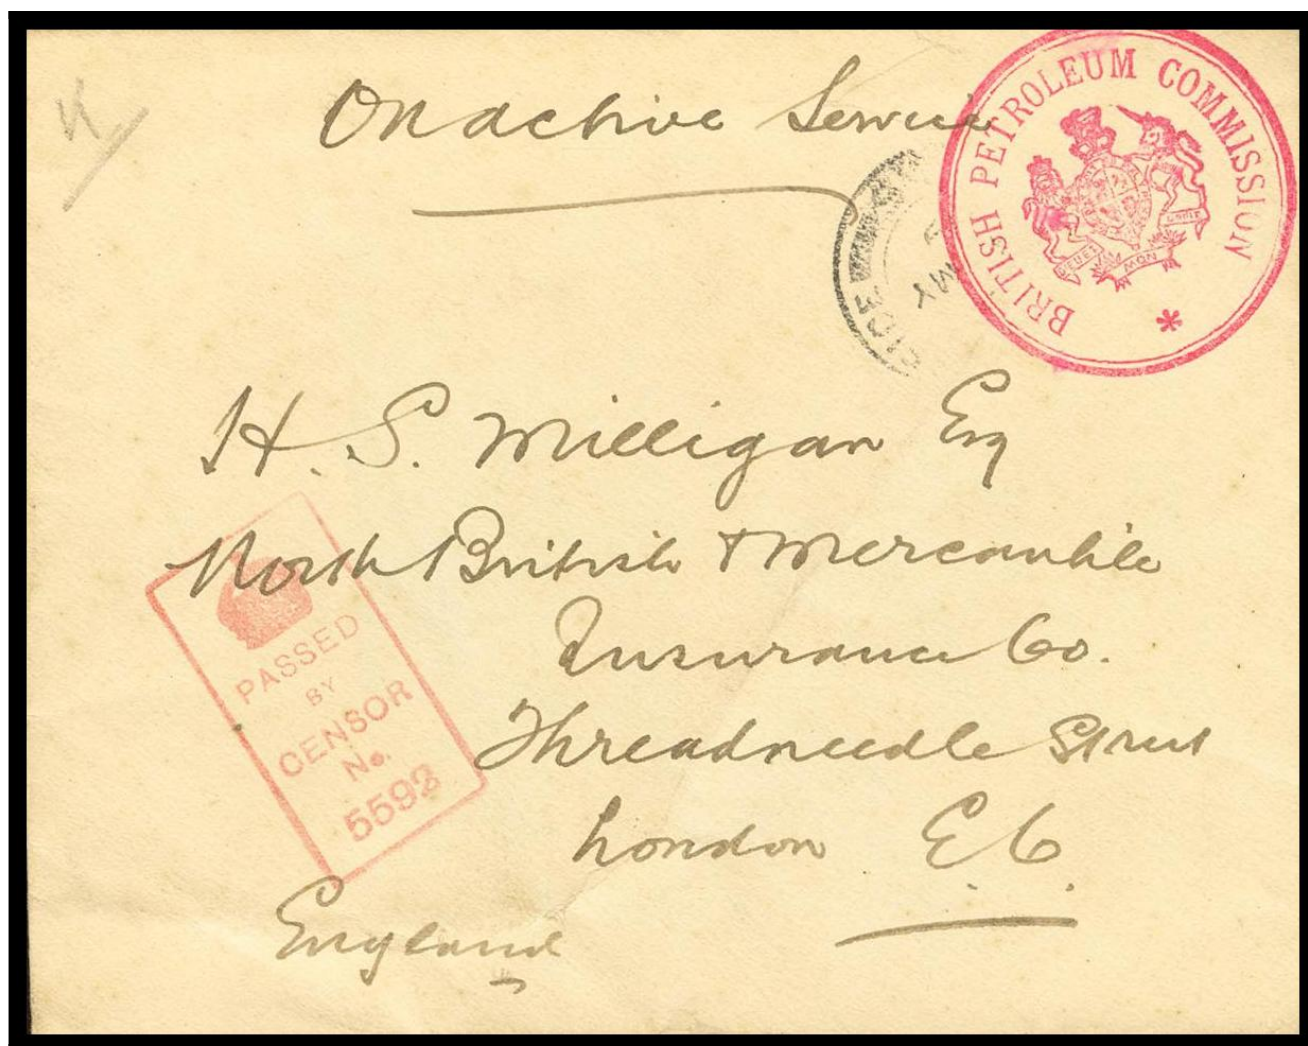 On active Service
BRITISH PETROLEUM COMMISSION *
DIEU ET
MON
DROIT
MY
H. S. Milligan Esq
North British & Mercantile
Insurance Co.
Threadneedle Street
London E.C.
England
PASSED
BY
CENSOR
No.
5592